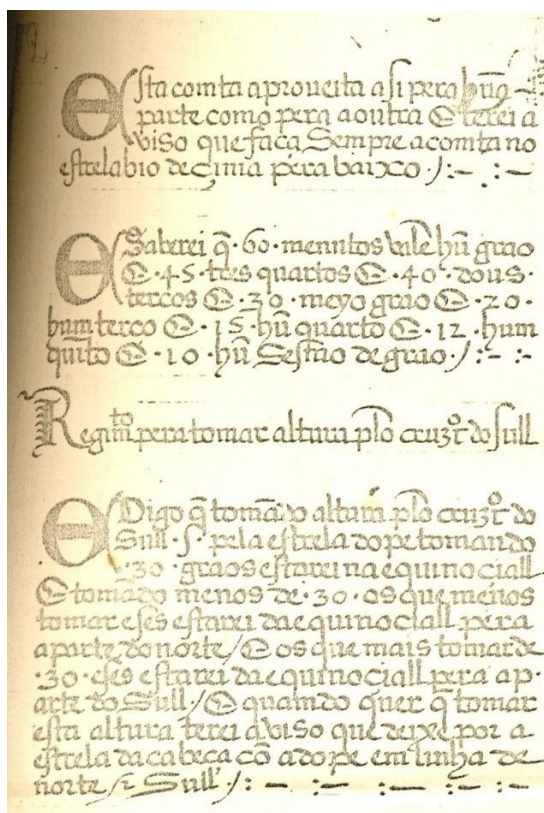 Esta comta aproveita asi pera hũa
parte como pera a outra E terei a
viso que faca Sempre a comta no
estrelabio de Cima pera baixo ./:- .:-
E Saberei q̃ · 60 · menutos vale hũ grao
E · 45 · tres quartos E · 40 · dous ·
tercos E · 30 · meyo grao E · 20 ·
hum terco E · 15 · hũ quarto E · 12 · hum
quĩto E · 10 · hũ Sesmo de grao ./:- :-
Regimto pera tomar altura plo cruzro do Sull
E Digo q̃ tomãdo altura plo cruzro do
Sull · S · pela estrela do pe tomando
· 30 · graos estarei na equinociall
E tomãdo menos de · 30 · os que menos
tomar eses estarei da equinociall pera
a parte do norte / E os que mais tomar de
· 30 · eses estarei da equinociall pera a p ·
arte do Sull / E quamdo quer q̃ tomar
esta altura terei aviso que deixe por a
estrela da cabeca cõ a do pe em linha de
norte / i Sull ./:- :- :- :-